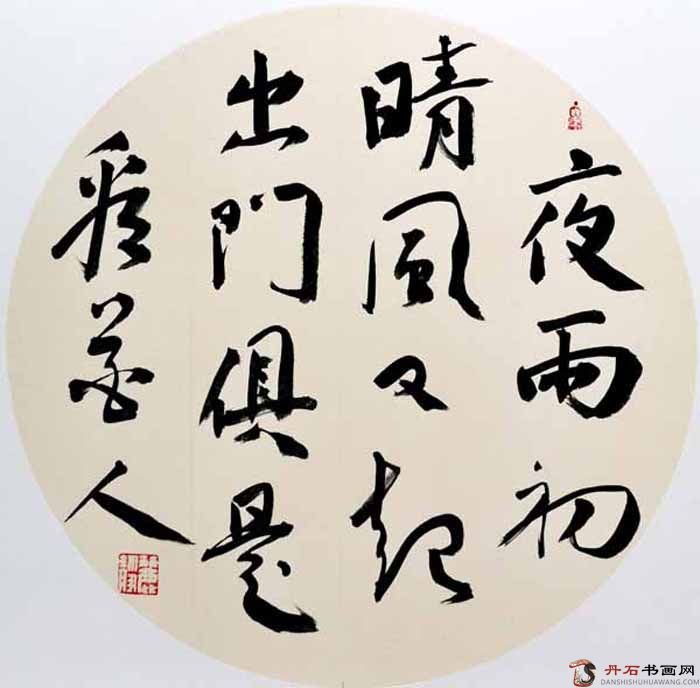 夜雨初
晴風又起
出門俱是
看花人
丹石书画网
DANSHISHUHUAWANG.COM